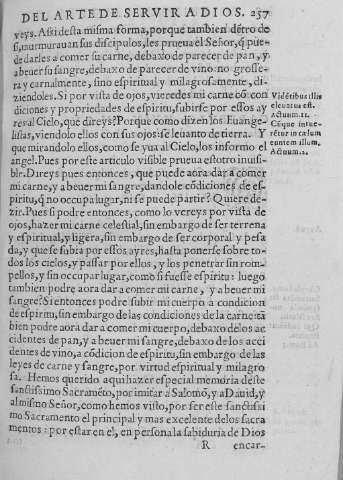 DEL ARTE DE SERVIR A DIOS. 257
veys. Assi desta misma forma, porque tambien dētro de
si, murmurauan sus discipulos, les prueua el Señor, q̃ pue-
de darles a comer su carne, debaxo de parecer de pan, y
a beuer su sangre, debaxo de parecer de vino: no grosse-
ra y carnalmente, sino espiritual y milagrosamente, di-
ziendoles. Si por vista de ojos, vieredes mi carne cō con-
diciones y propriedades de espiritu, subirse por essos ay
res al Cielo, que direys? Porque como dizen los Euange-
listas, viendolo ellos con sus ojos: se leuanto de tierra. Y
que mirandolo ellos, como se yua al Cielo, los informo el
angel. Pues por este articulo visible prueua estotro inuisi-
ble. Direys pues entonces, que puede aora dar a comer
mi carne, y a beuer mi sangre, dandole cōdiciones de es-
piritu, q̃ no occupa lugar, ni se puede partir? Quiere de-
zir. Pues si podre entonces, como lo vereys por vista de
ojos, hazer mi carne celestial, sin embargo de ser terrena
y espiritual, y ligera, sin embargo de ser corporal y pesa
da, y que se suba por essos ayres, hasta ponerse sobre to-
dos los cielos, y passar por ellos, y los penetrar sin rom-
pellos, y sin occupar lugar, como si fuesse espiritu: luego
tambien podre aora dar a comer mi carne, y a beuer mi
sangre? Si entonces podre subir mi cuerpo a condicion
de espiritu, sin embargo de las condiciones de la carne: tā
bien podre aora dar a comer mi cuerpo, debaxo de los ac-
cidentes de pan, y a beuer mi sangre, debaxo de los acci
dentes de vino, a cōdicion de espiritu, sin embargo de las
leyes de carne y sangre, por virtud espiritual y milagro
sa. Hemos querido aqui hazer especial memoria deste
sanctissimo Sacramēto, por imitar a Salomō, y a Dauid, y
al mismo Señor, como hemos visto, por ser este sanctissi
mo Sacramento el principal y mas excelente de los sacra
mentos: por estar en el, en persona la sabiduria de Dios
R encar-
Vidētibus illis
eleuatus est.
Actuum. 1.
Cūque intue-
rētur in cælum
euntem illum.
Actuum. 1.